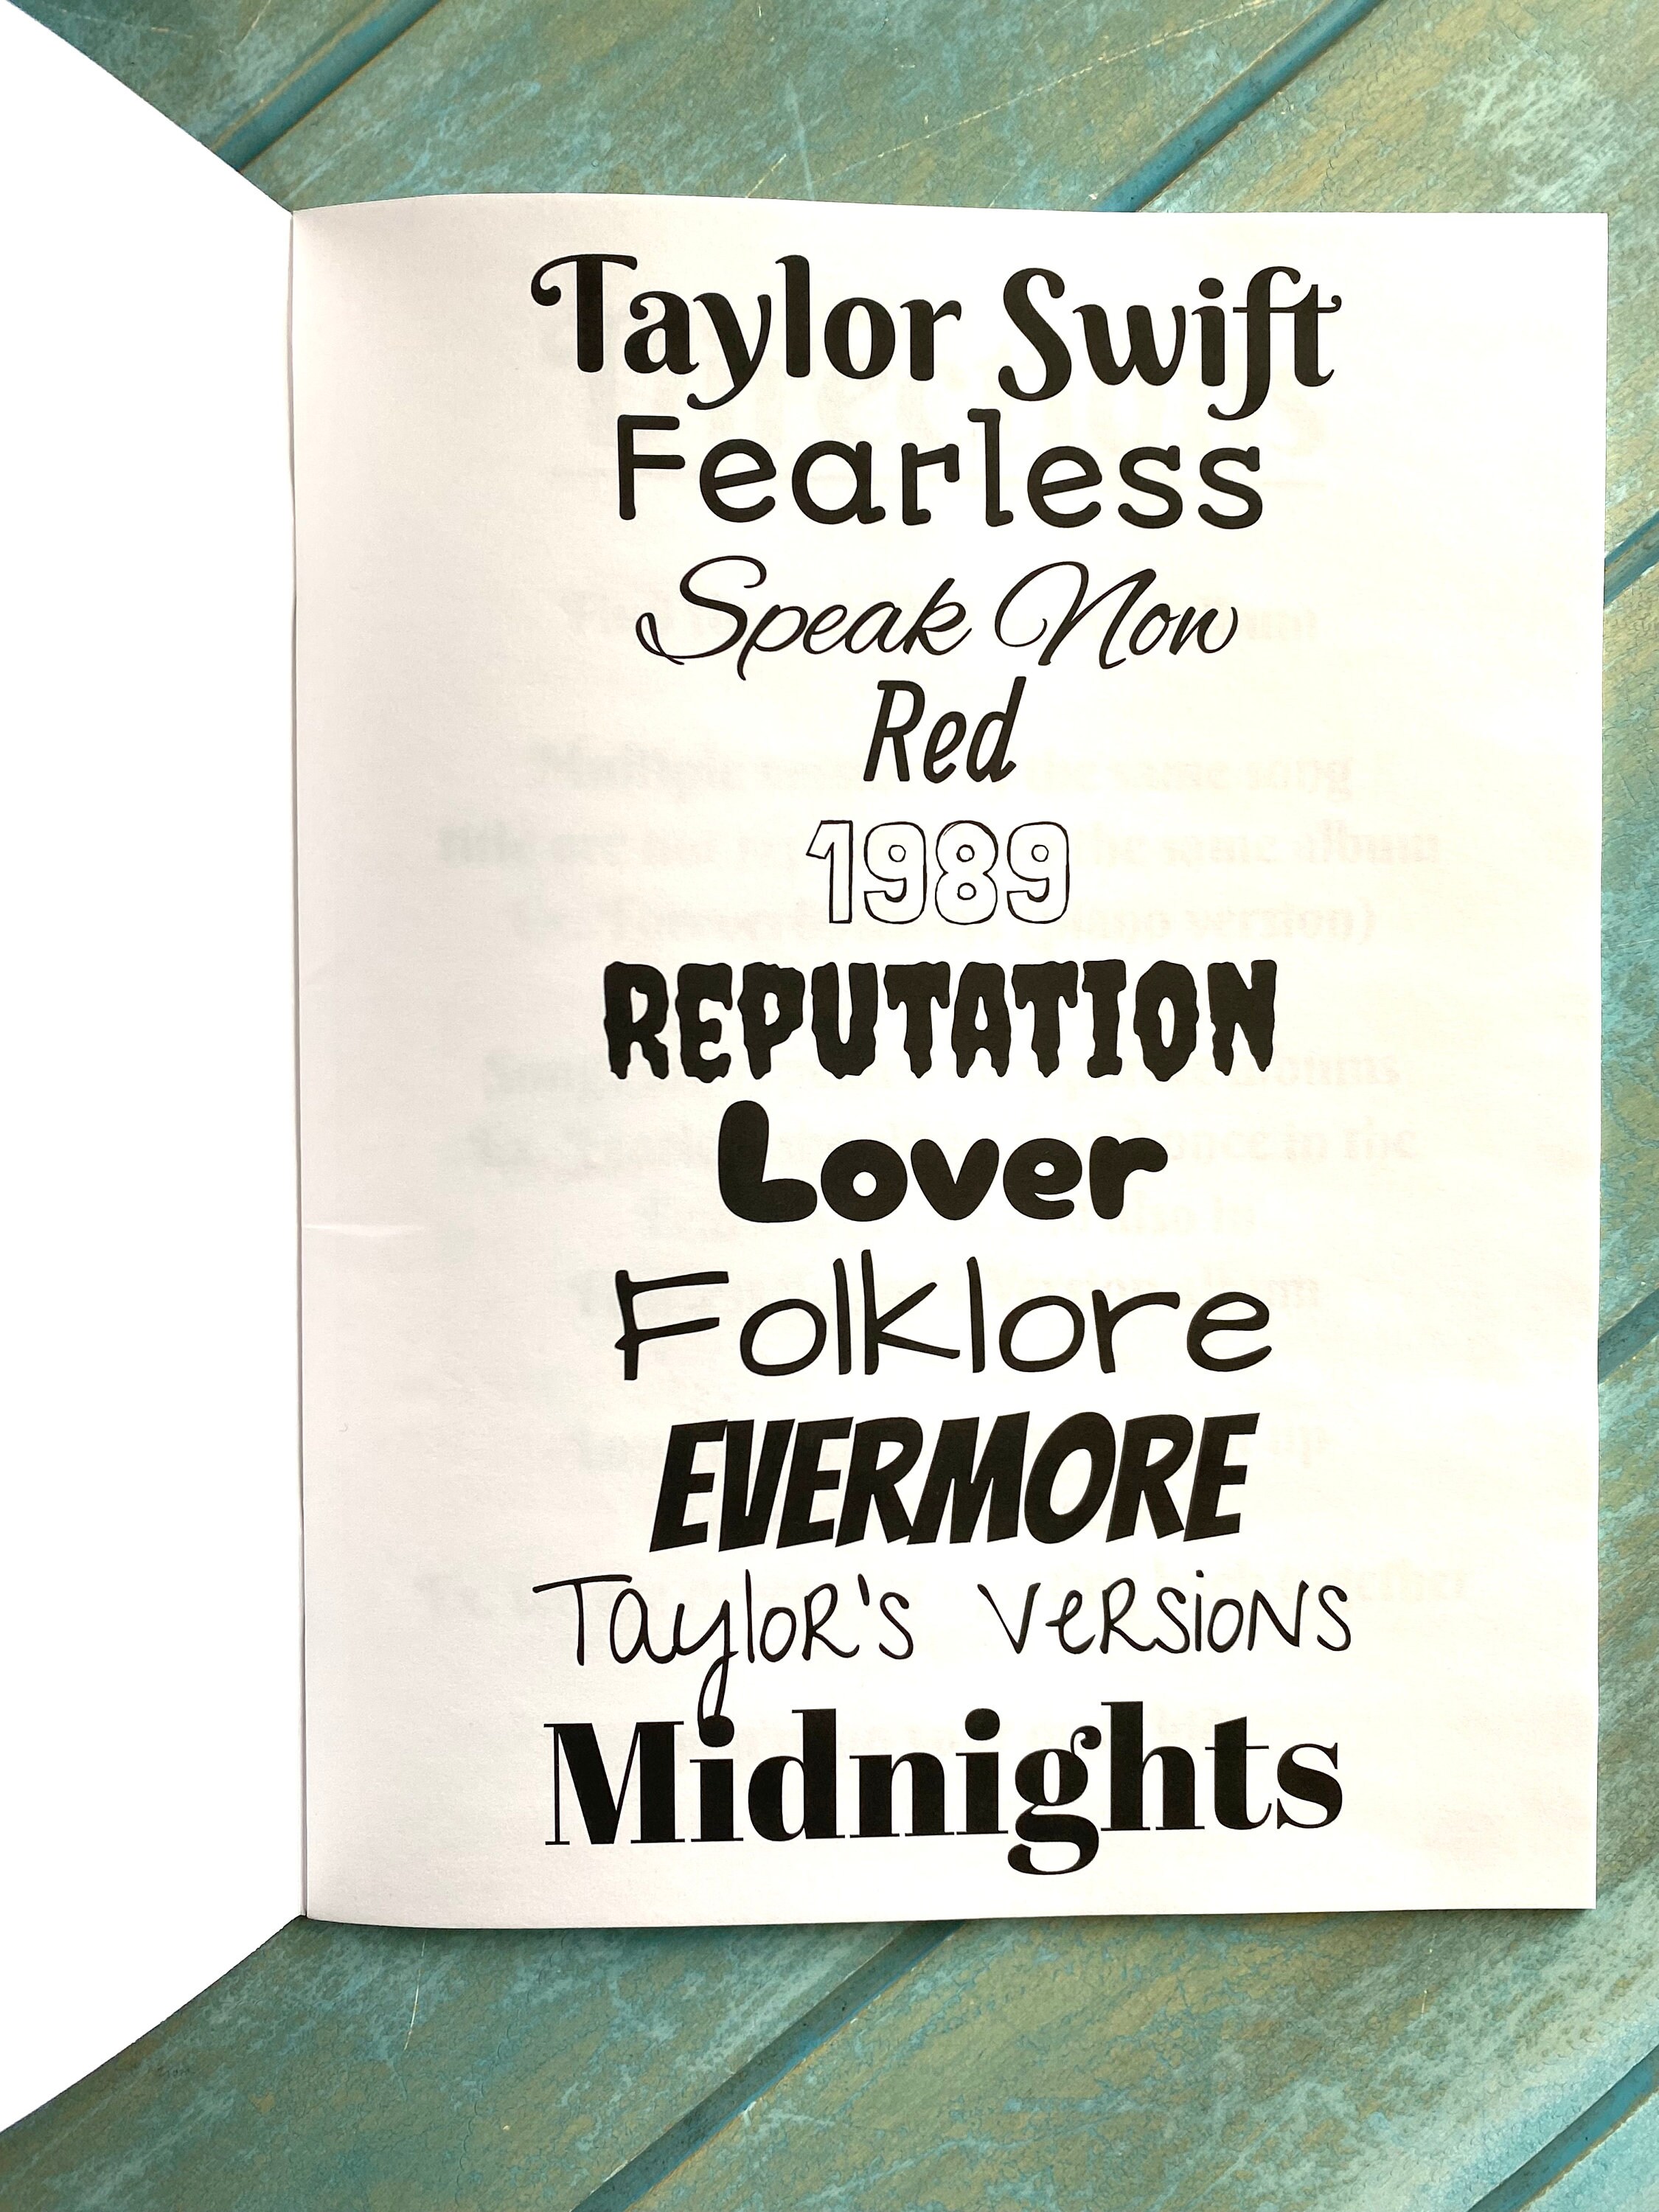 Taylor Swift
Fearless
Speak Now
Red
1989
REPUTATION
Lover
Folklore
EVERMORE
TayloR's VeRSioNS
Midnights